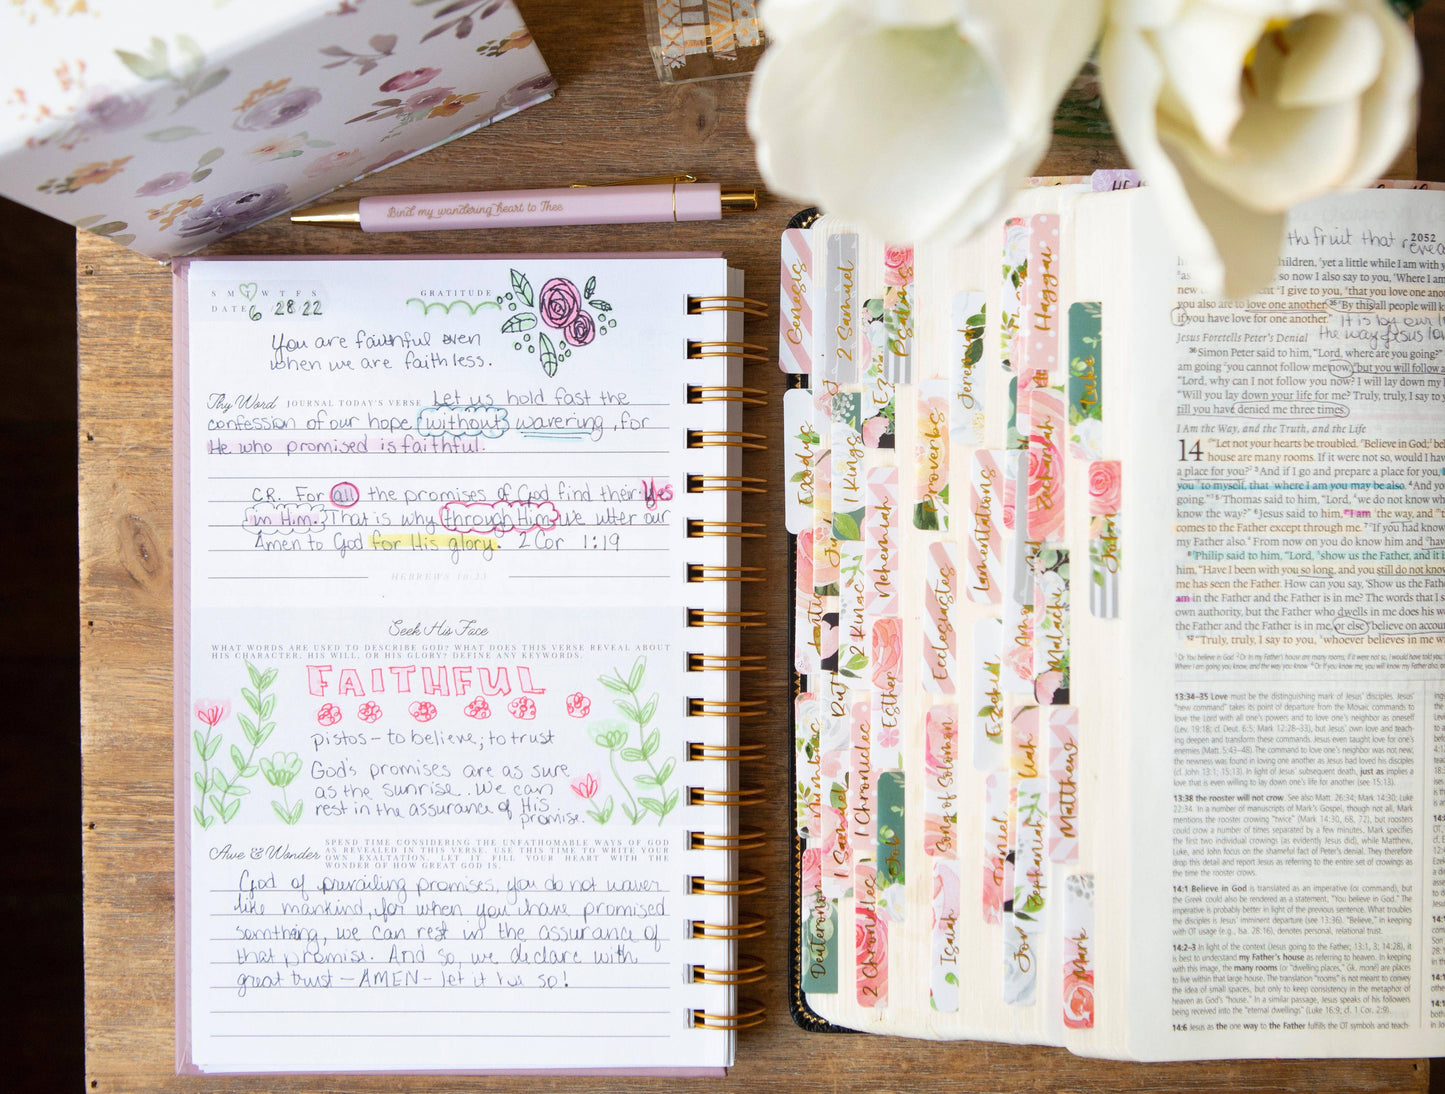 Bind my wandering heart to Thee
S M T W T F S
DATE 6 28 22
GRATITUDE
You are faithful even
when we are faithless.
Thy Word JOURNAL TODAY'S VERSE Let us hold fast the
confession of our hope without wavering, for
He who promised is faithful.
CR. For all the promises of God find their Yes
in Him. That is why through Him we utter our
Amen to God for His glory. 2 Cor 1:19
HEBREWS 10:23
Seek His Face
WHAT WORDS ARE USED TO DESCRIBE GOD? WHAT DOES THIS VERSE REVEAL ABOUT
HIS CHARACTER, HIS WILL, OR HIS GLORY? DEFINE ANY KEYWORDS.
FAITHFUL
pistos - to believe, to trust
God's promises are as sure
as the sunrise. We can
rest in the assurance of His
promise.
Awe & Wonder SPEND TIME CONSIDERING THE UNFATHOMABLE WAYS OF GOD
AS REVEALED IN THIS VERSE. USE THIS TIME TO WRITE YOUR
OWN EXALTATION. LET IT FILL YOUR HEART WITH THE
WONDER OF HOW GREAT GOD IS.
God of prevailing promises, you do not waver
like mankind, for when you have promised
something, we can rest in the assurance of
that promise. And so, we declare with
great trust - AMEN - let it be so!
Genesis
2 Samuel
Psalms
Jeremiah
Haggai
Luke
Exodus
1 Kings
Proverbs
Lamentations
Zechariah
John
Nehemiah
2 Kings
Ecclesiastes
Malachi
Esther
Ezekiel
Numbers
1 Chronicles
Song of Solomon
Matthew
1 Samuel
Job
Daniel
Zephaniah
Deuteronomy
2 Chronicles
Isaiah
Mark
the fruit that
2052
children, yet a little while I am with
so now I also say to you, 'Where I am
I give to you, that you love one
you also are to love one another. 35 By this all people will
if you have love for one another."
It is by our
the way Jesus
Jesus Foretells Peter's Denial
36 Simon Peter said to him, "Lord, where are you going?"
am going you cannot follow me now, but you will follow
"Lord, why can I not follow you now? I will lay down my
"Will you lay down your life for me? Truly, truly, I say to
till you have denied me three times.
I Am the Way, and the Truth, and the Life
14 "Let not your hearts be troubled. Believe in God;
house are many rooms. If it were not so, would I
a place for you? 3 And if I go and prepare a place for you,
you to myself, that where I am you may be also. 4 And
going." 5 Thomas said to him, "Lord, we do not know
know the way?" 6 Jesus said to him, "I am the way, and
comes to the Father except through me. 7 If you had known
my Father also. From now on you do know him and
8 Philip said to him, "Lord, show us the Father, and it
him, "Have I been with you so long, and you still do not know
me has seen the Father. How can you say, 'Show us the
am in the Father and the Father is in me? The words that I
own authority, but the Father who dwells in me does his
the Father and the Father is in me, or else believe on account
12 "Truly, truly, I say to you, whoever believes in me
13:34–35 Love must be the distinguishing mark of Jesus' disciples. Jesus'
"new command" takes its point of departure from the Mosaic commands to
love the Lord with all one's powers and to love one's neighbor as oneself
(Lev. 19:18; cf. Deut. 6:5; Mark 12:28–33), but Jesus' own love and teach-
ing deepen and transform these commands. Jesus even taught love for one's
enemies (Matt. 5:43–48). The command to love one's neighbor was not new;
the newness was found in loving one another as Jesus had loved his disciples
(cf. John 13:1; 15:13). In light of Jesus' subsequent death, just as implies a
love that is even willing to lay down one's life for another (see 15:13).
13:38 the rooster will not crow. See also Matt. 26:34; Mark 14:30; Luke
22:34. In a number of manuscripts of Mark's Gospel, though not all, Mark
mentions the rooster crowing "twice" (Mark 14:30, 68, 72), but roosters
could crow a number of times separated by a few minutes. Mark specifies
the first two individual crowings (as evidently Jesus did), while Matthew,
Luke, and John focus on the shameful fact of Peter's denial. They therefore
drop this detail and report Jesus as referring to the entire set of crowings as
the time the rooster crows.
14:1 Believe in God is translated as an imperative (or command), but
the Greek could also be rendered as a statement, "You believe in God." The
imperative is probably better in light of the previous sentence. What troubles
the disciples is Jesus' imminent departure (see 13:36). "Believe," in keeping
with OT usage (e.g., Isa. 28:16), denotes personal, relational trust.
14:2–3 In light of the context (Jesus going to the Father; 13:1, 3; 14:28), it
is best to understand my Father's house as referring to heaven. In keeping
with this image, the many rooms (or "dwelling places," Gk. monē) are places
to live within that large house. The translation "rooms" is not meant to convey
the idea of small spaces, but only to keep consistency in the metaphor of
heaven as God's "house." In a similar passage, Jesus speaks of his followers
being received into the "eternal dwellings" (Luke 16:9; cf. 1 Cor. 2:9).
14:6 Jesus as the one way to the Father fulfills the OT symbols and teach-